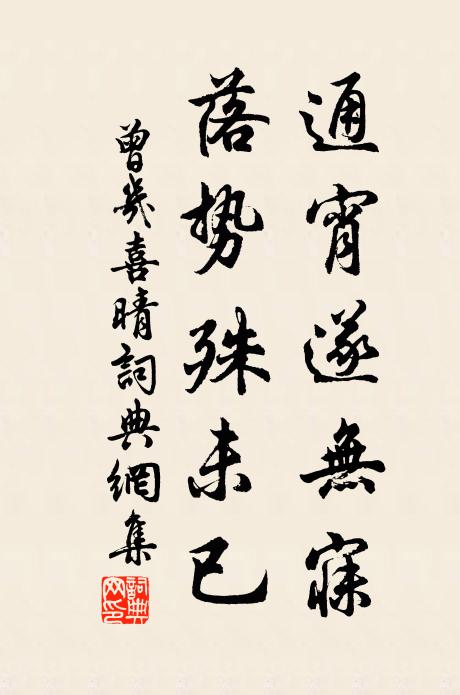 通宵遂無寐
落勢殊未已
曾幾喜晴詞典網集
詞典
網印